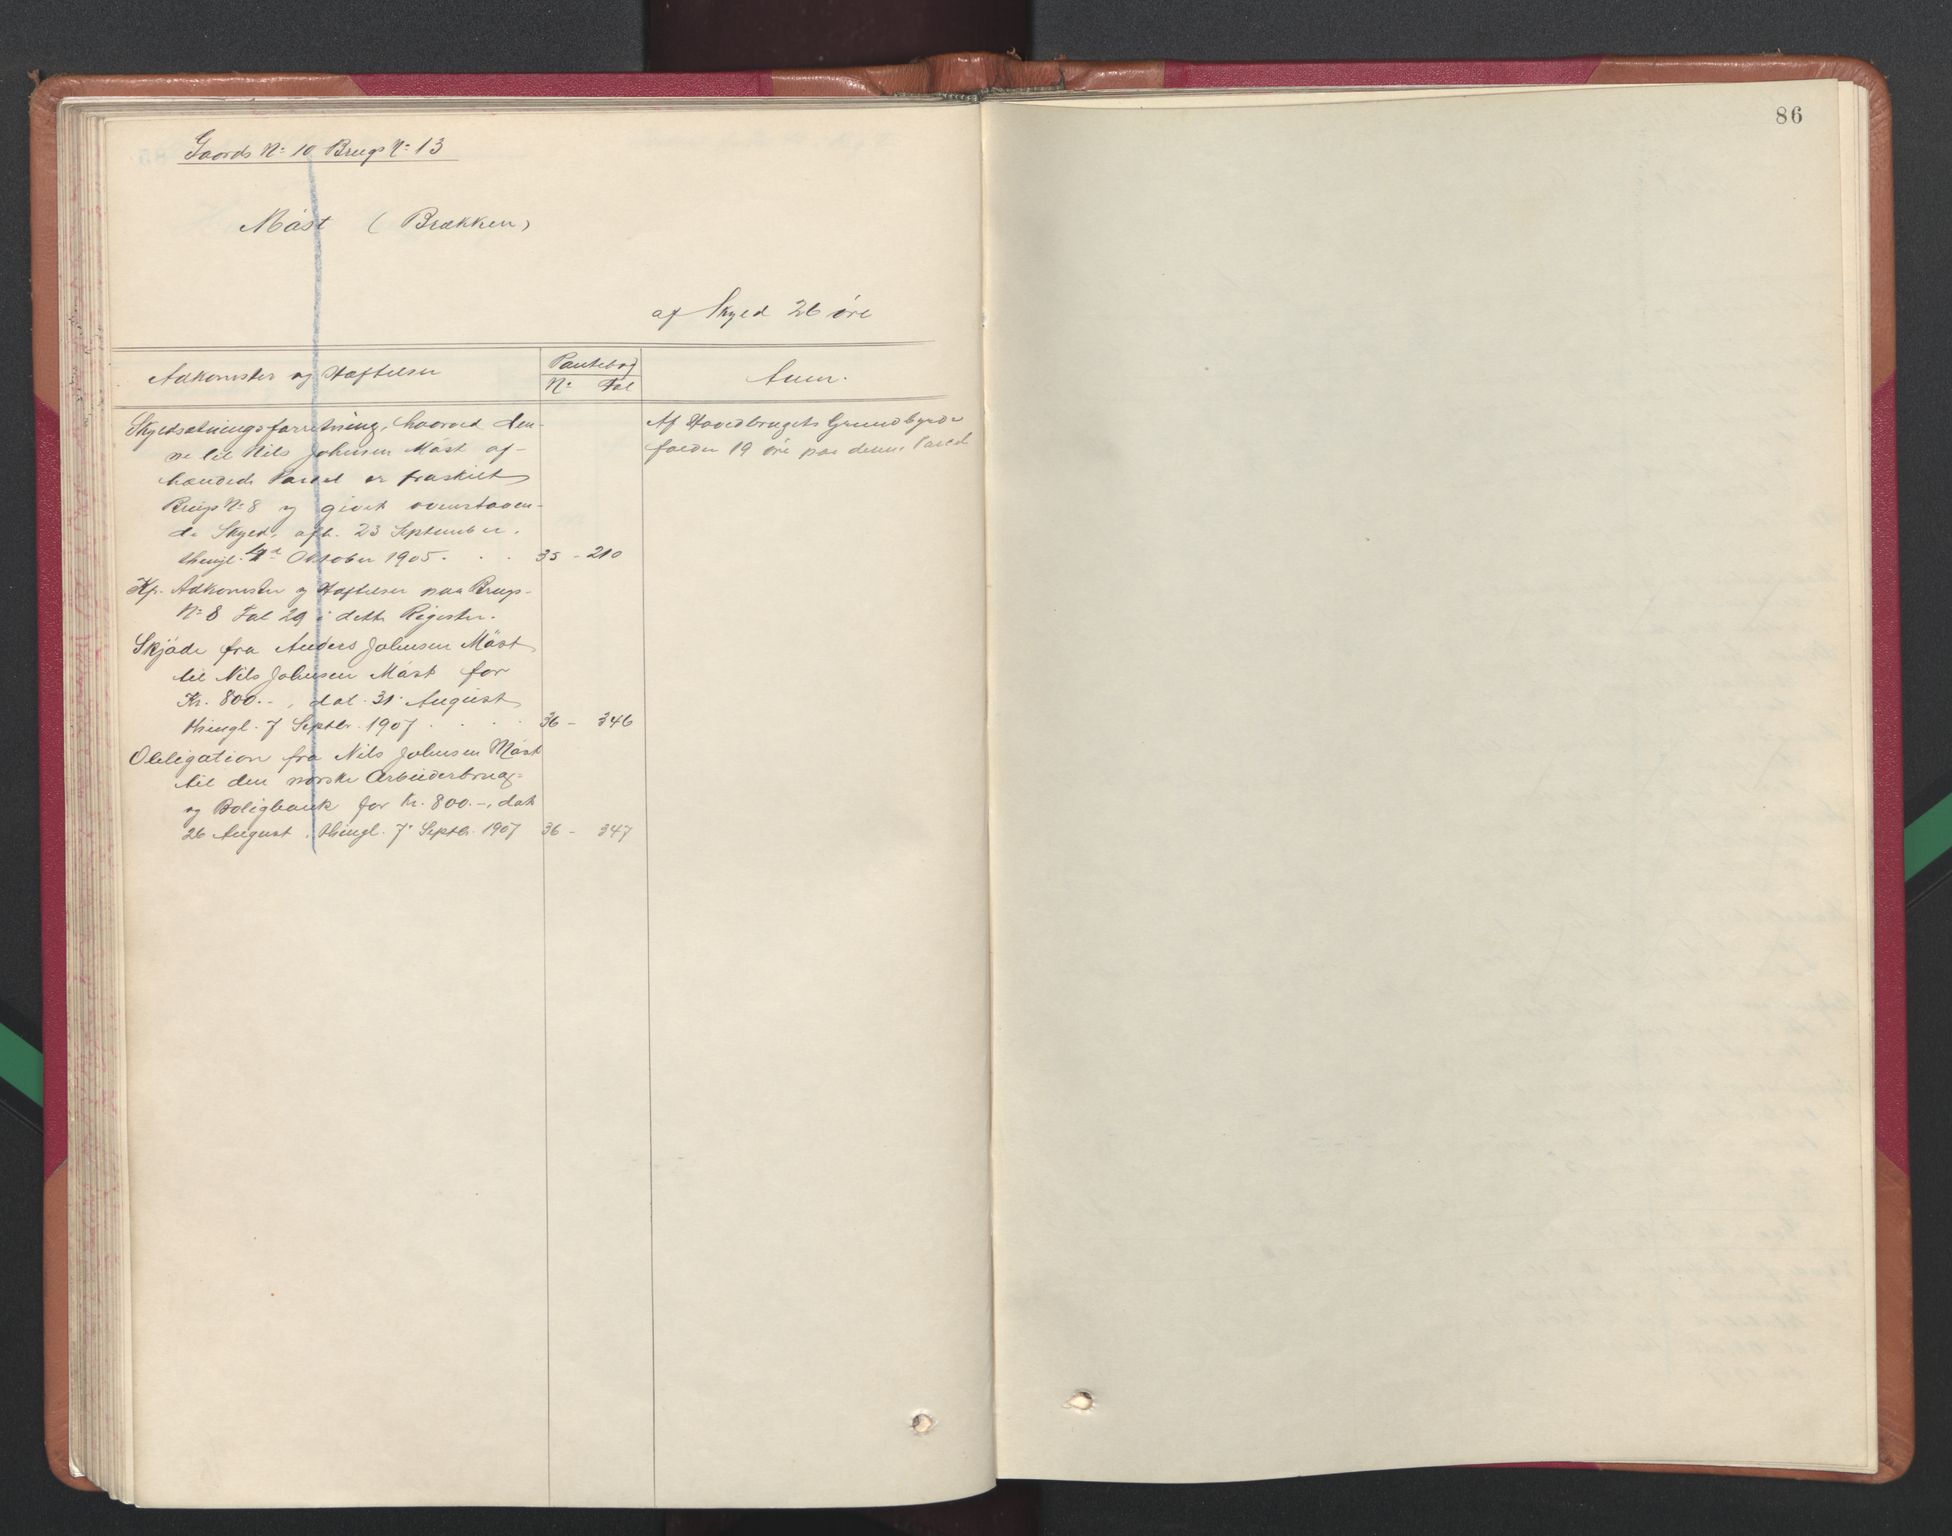 Gaards No 10 Brugs No 13
Måst (Brækken)
af Skyld 26 öre
Adkomster og Hæftelser
Pantebog
No Fol
Anm.
Skyldsætningsforretning, hvorved den-
ne til Nils Johnsen Måst af-
hændede Parcel er fraskilt
Brugs No 8 og givet ovenstaaen-
de Skyld, afh. 23 September,
thingl. 4de Oktober 1905 . . . 35 - 210
Kfr. Adkomster og Hæftelser paa Brugs-
No 8 Fol 29 i dette Register.
Skjöde fra Anders Johnsen Måst
til Nils Johnsen Måst for
Kr. 800.-, dat. 31 August
thingl. 7 Septbr. 1907 . . . . 36 - 346
Obligation fra Nils Johnsen Måst
til den norske Arbeiderbrug-
og Boligbank for Kr. 800.-, dat
26 August, thingl. 7 Septbr. 1907 36 - 347
Af Hovedbrugets Grundbyrde
falder 19 öre paa denne Parcel
86